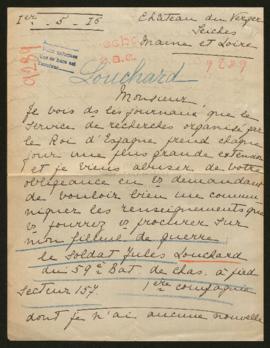 1er - 5 - 15
Château du Verger
Seiches
Maine et Loire
9289
9289
Louchard
Monsieur,
Je vois ds les journaux que le
Service de recherches organisé par
le Roi d'Espagne prend chaque
jour une plus grande extension
et je viens abuser de votre
obligeance en vs demandant
de vouloir bien me commu
niquer les renseignements que
vs pourrez vs procurer sur
mon filleul de guerre
le Soldat Jules Louchard
du 59e Bat de chas. à pied
Secteur 157 1ère compagnie
dont je n'ai aucune nouvelle